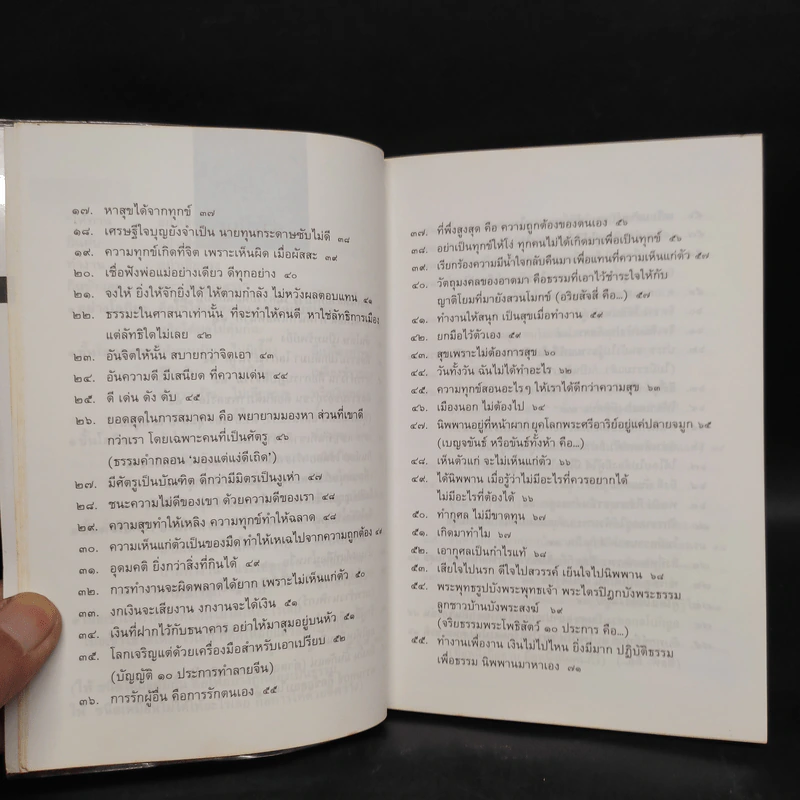 ๑๗. หาสุขได้จากทุกข์ ๓๗
๑๘. เศรษฐีใจบุญยังจำเป็น นายทุนกระดาษซับไม่ดี ๓๘
๑๙. ความทุกข์เกิดที่จิต เพราะเห็นผิด เมื่อผัสสะ ๓๙
๒๐. เชื่อฟังพ่อแม่อย่างเดียว ดีทุกอย่าง ๔๐
๒๑. จงให้ ยิ่งให้จักยิ่งได้ ให้ตามกำลัง ไม่หวังผลตอบแทน ๔๑
๒๒. ธรรมะในศาสนาเท่านั้น ที่จะทำให้คนดี หาใช่ลัทธิการเมือง
แต่ลัทธิใดไม่เลย ๔๒
๒๓. อันจิตให้นั้น สบายกว่าจิตเอา ๔๓
๒๔. อันความดี มีเสนียด ที่ความเด่น ๔๔
๒๕. ดี เด่น ดัง ดับ ๔๕
๒๖. ยอดสุดในการสมาคม คือ พยายามมองหา ส่วนที่เขาดี
กว่าเรา โดยเฉพาะคนที่เป็นศัตรู ๔๖
(ธรรมคำกลอน 'มองแต่แง่ดีเถิด')
๒๗. มีศัตรูเป็นบัณฑิต ดีกว่ามีมิตรเป็นงูเห่า ๔๗
๒๘. ชนะความไม่ดีของเขา ด้วยความดีของเรา ๔๘
๒๙. ความสุขทำให้เหลิง ความทุกข์ทำให้ฉลาด ๔๘
๓๐. ความเห็นแก่ตัวเป็นของมืด ทำให้เหเฉไปจากความถูกต้อง ๗
๓๑. อุดมคติ ยิ่งกว่าสิ่งที่กินได้ ๔๙
๓๒. การทำงานจะผิดพลาดได้ยาก เพราะไม่เห็นแก่ตัว ๕๐
๓๓. งกเงินจะเสียงาน งกงานจะได้เงิน ๕๑
๓๔. เงินที่ฝากไว้กับธนาคาร อย่าให้มาสุมอยู่บนหัว ๕๑
๓๕. โลกเจริญแต่ด้วยเครื่องมือสำหรับเอาเปรียบ ๕๒
(บัญญัติ ๑๐ ประการทำลายจีน)
๓๖. การรักผู้อื่น คือการรักตนเอง ๕๕
๓๗. ที่พึ่งสูงสุด คือ ความถูกต้องของตนเอง ๕๖
๓๘. อย่าเป็นทุกข์ให้โง่ ทุกคนไม่ได้เกิดมาเพื่อเป็นทุกข์ ๕๖
๓๙. เรียกร้องความมีน้ำใจกลับคืนมา เพื่อแทนที่ความเห็นแก่ตัว ๕๗
๔๐. วัตถุมงคลของอาตมา คือธรรมที่เอาไว้ชำระใจให้กับ
ญาติโยมที่มายังสวนโมกข์ (อริยสัจสี่ คือ...) ๕๗
๔๑. ทำงานให้สนุก เป็นสุขเมื่อทำงาน ๕๙
๔๒. ยกมือไว้ตัวเอง ๕๙
๔๓. สุขเพราะไม่ต้องการสุข ๖๐
๔๔. วันทั้งวัน ฉันไม่ได้ทำอะไร ๖๒
๔๕. ความทุกข์สอนอะไรๆ ให้เราได้ดีกว่าความสุข ๖๓
๔๖. เมืองนอก ไม่ต้องไป ๖๔
๔๗. นิพพานอยู่ที่หน้าผาก ยุคโลกพระศรีอาริย์อยู่แค่ปลายจมูก ๖๕
(เบญจขันธ์ หรือขันธ์ทั้งห้า คือ...)
๔๘. เห็นตัวแก่ จะไม่เห็นแก่ตัว ๖๖
๔๙. ได้นิพพาน เมื่อรู้ว่าไม่มีอะไรที่ควรอยากได้
ไม่มีอะไรที่ต้องได้ ๖๖
๕๐. ทำกุศล ไม่มีขาดทุน ๖๗
๕๑. เกิดมาทำไม ๖๗
๕๒. เอากุศลเป็นกำไรแท้ ๖๘
๕๓. เสียใจไปนรก ดีใจไปสวรรค์ เย็นใจไปนิพพาน ๖๘
๕๔. พระพุทธรูปบังพระพุทธเจ้า พระไตรปิฎกบังพระธรรม
ลูกชาวบ้านบังพระสงฆ์ ๖๙
(จริยธรรมพระโพธิสัตว์ ๑๐ ประการ คือ...)
๕๕. ทำงานเพื่องาน เงินไม่ไปไหน ยิ่งมีมาก ปฏิบัติธรรม
เพื่อธรรม นิพพานมาหาเอง ๗๑